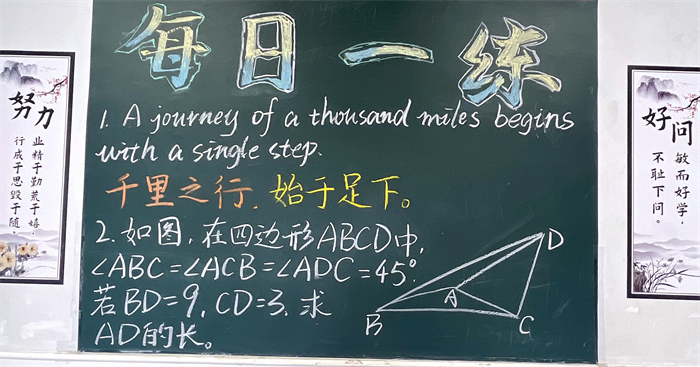 每日一练
1. A journey of a thousand miles begins
with a single step.
千里之行，始于足下。
2.如图，在四边形ABCD中，
∠ABC=∠ACB=∠ADC=45°.
若BD=9，CD=3，求
AD的长。
D
A
B
C
努力
业精于勤荒于嬉
行成于思毁于随
好问
敏而好学，
不耻下问。